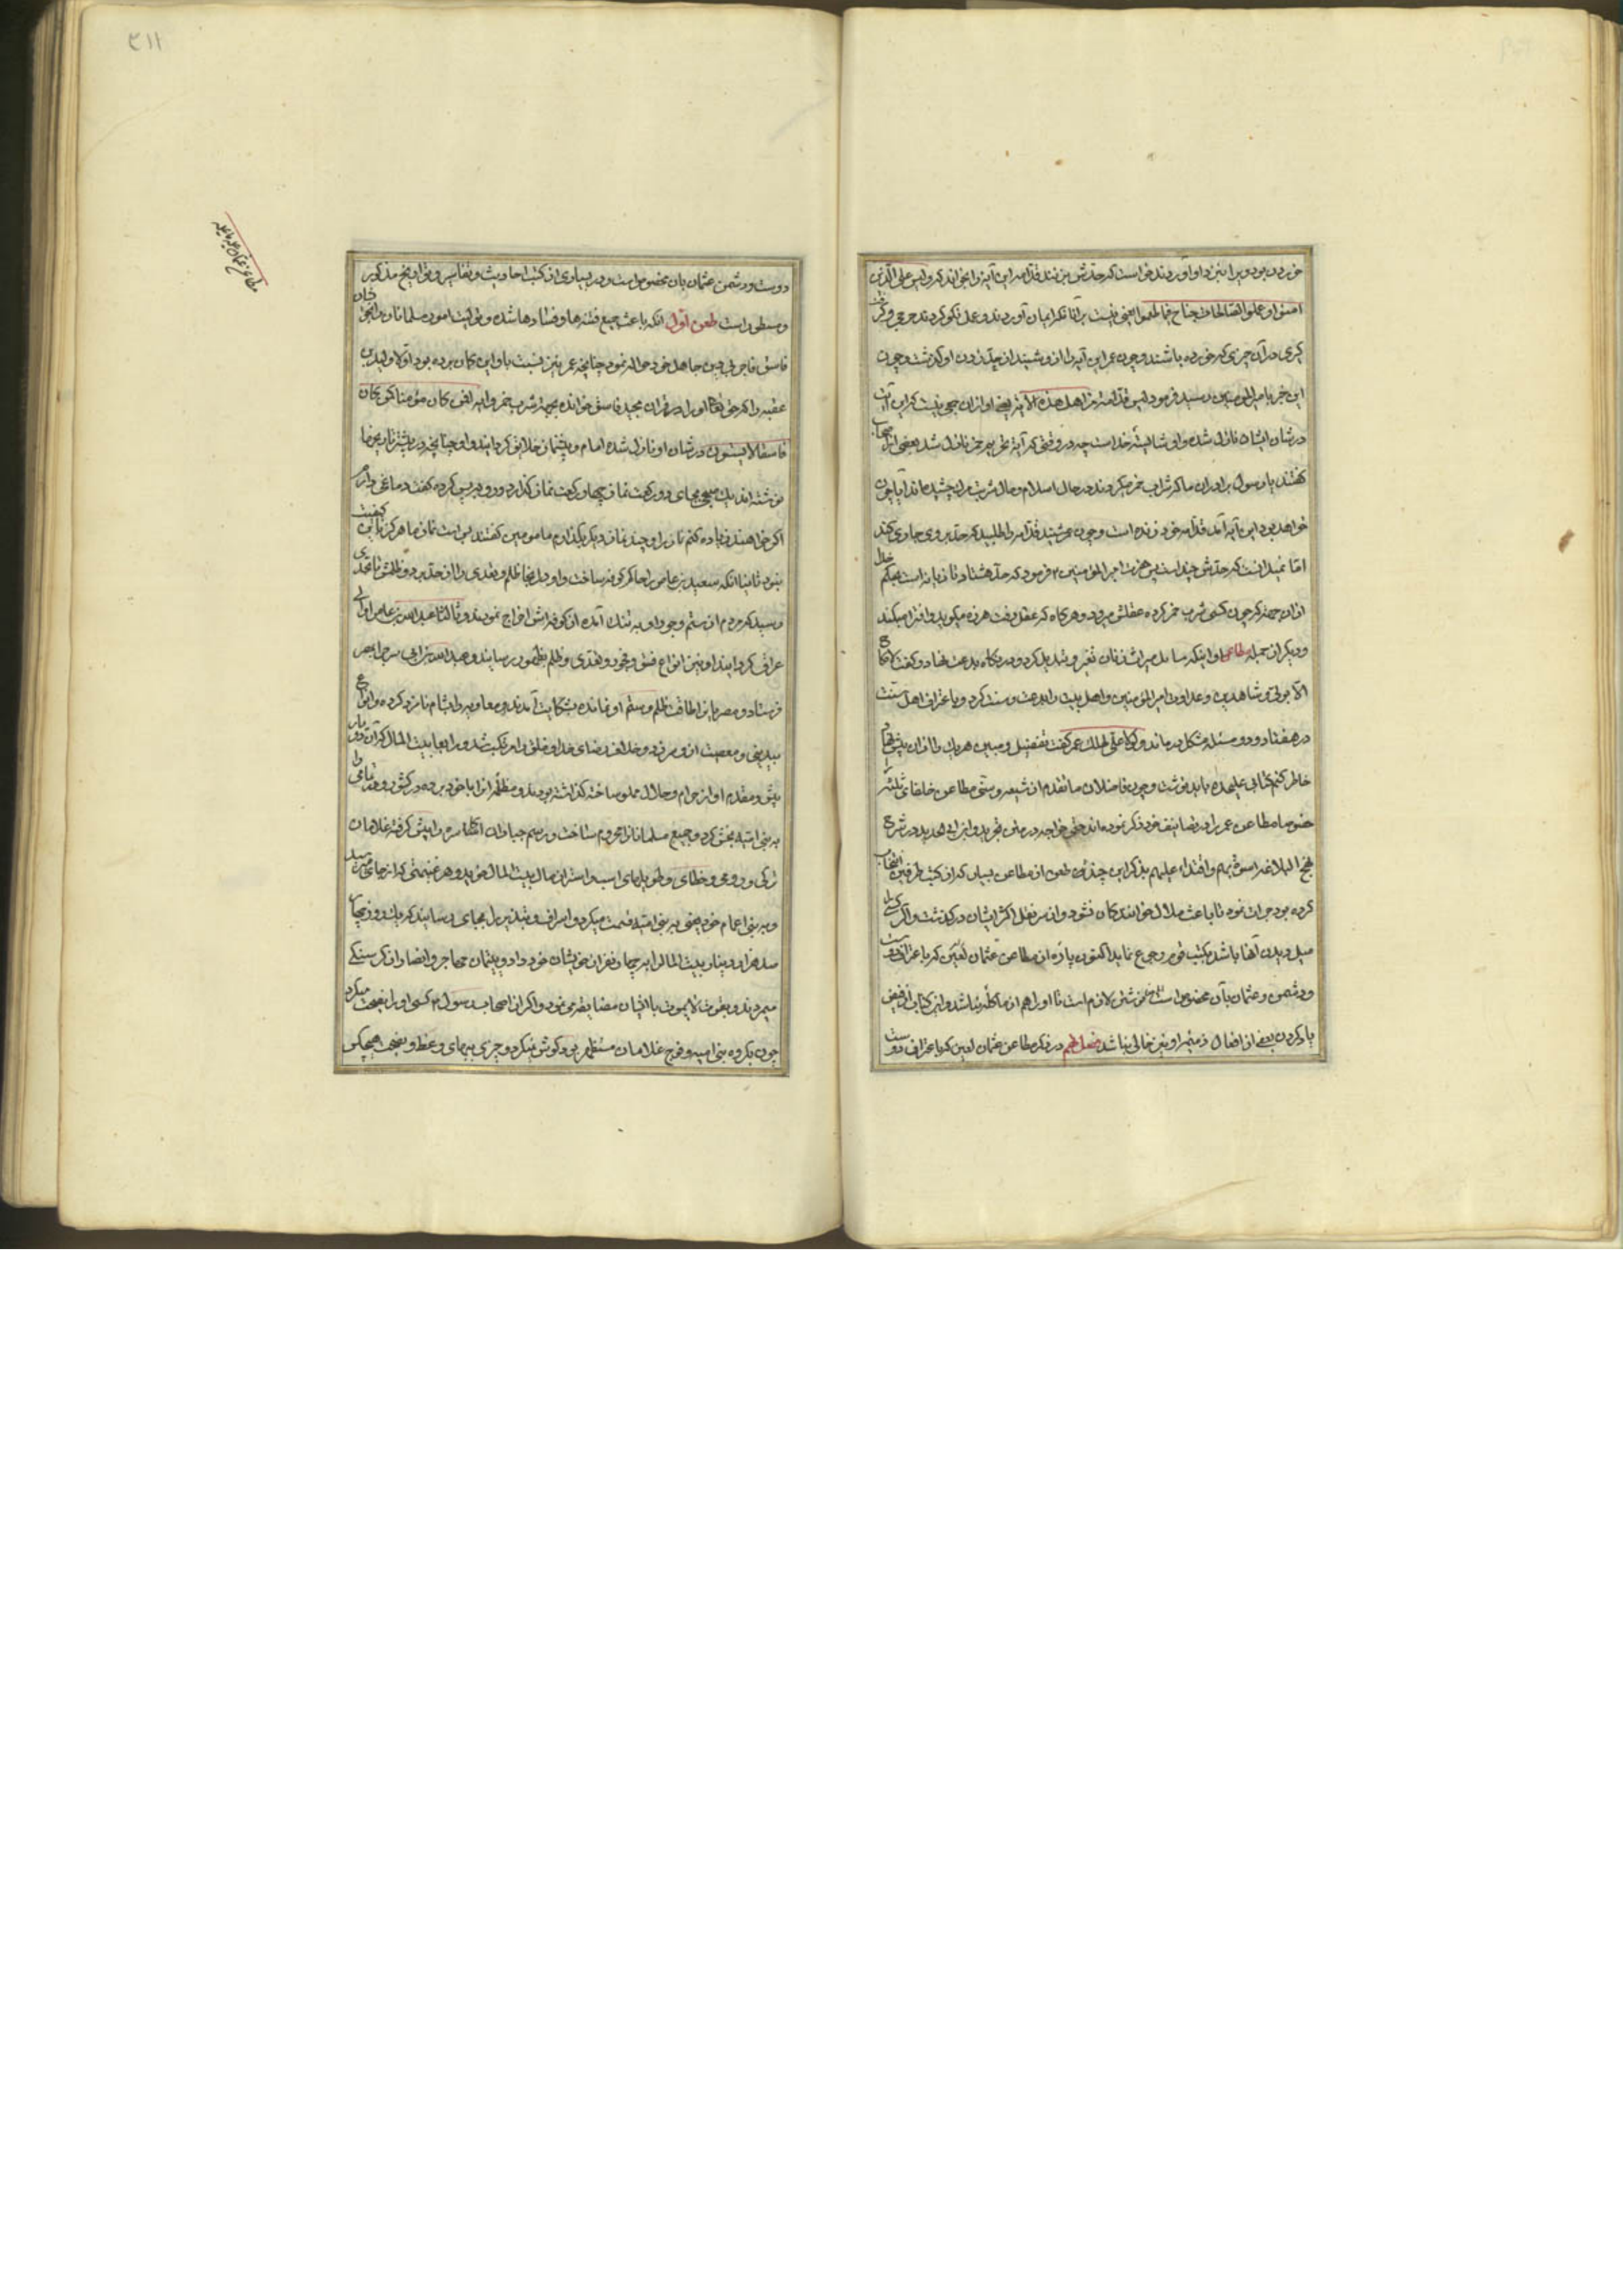 خوردن بود ویرا نیز داو آوردند خواست که حدش بزنند قدامه این آیه را بخواند که و لیس علی الذین
امنوا و عملوا الصالحات جناح فیما طعموا یعنی نیست برآنانکه ایمان آوردند و عمل نکو کردند حرجی و
در آن چیزی که خورده باشند و چون عمر این آیه را از وشنید از حد زدن او گذشت و چون
این خبر بامیرالمومنین رسید فرمود لیس قدامه من اهل هذه الآیه یعنی او از ان جمع نیست که این آیت
در شان ایشان نازل شده و او شایسته حد است چه در وقتی که آیه تحریم خمر نازل شد بعضی از اصحاب
گفتند یا رسول برادران ما که شراب خمر میکردند در حال اسلام و حال شربت مرک چشیده اند آیا چون
خواهد بود این آیه آمد قدامه خود زنده است و چون عمر شنید قدامه را طلبید که حد بر وی جاری کند
اما نمیدانست که حدش چند است پس حضرت امیرالمؤمنین فرمود که حد هشتاد تازیانه است بحکم خدا
از ان جهة که چون کسی شرب خمر کرده عقلش میرود و هرکاه که عقل رفت هرزه میکوید و افترا میکند
و دیگر از جمله مطاعن او اینکه مسائل میراث زنان تغیر و تبدیل کرد و در نکاح بدعت نهاد و گفت لا نکاح
الا بولی و شاهدین و عداوت امیرالمؤمنین و اهل بیت را بدعت و سنت کرد و باعتراف اهل سنت
در هفتاد و دو مسئله مشکل درماند و لولا علی لهلک عمر گفت تفضیل و مبین هر یک را از ان
خاطر کنم کتابی علیحده باید نوشت و چون فاضلان ما تقدم از شیعه و سنی مطاعن خلفای ثلثه
خصوصا مطاعن عمر را در تصانیف خود ذکر نموده اند حتی خواجه در متن تجرید و ابن ابی الحدید در شرح
نهج البلاغه اسوة بهم و اقتداء علیهم بذکر این چند طعن از مطاعن بسیار که از کتب طرفین انتخاب
کرده بود جرات نمود تا باعث ملال خوانندکان نشود و از سر نقل اکثر ایشان درگذشت و اگر کسی را
میل دیدن آنها باشد بکتب قوم رجوع نماید اکنون پاره از مطاعن عثمان لعین که باعتراف دوست
و دشمن و عثمان بآن مخصوص است نوشتن لازم است تا او را هم از ما کله نباشد و این کتاب از فیض
یاد کردن بعضی از افعال ذمیمه او نیز خالی نباشد فصل در ذکر مطاعن عثمان لعین که باعتراف دوست
مطاعن عثمان علیه ما علیه
دوست و دشمن عثمان بان مخصوص است و در بسیاری از کتب احادیث و تفاسیر و تواریخ مذکور
و مسطور است طعن اول انکه باعث جمیع فتنه ها و فسادها شده و تولیت امور مسلمانان را بخویشان
فاسق فاجر بی دین جاهل خود حواله نمود چنانچه عمر نیز نسبت باو این کمان برده بود اولا ولید بن
عقبه را که حق تعالی او را در قران مجید فاسق خوانده بجهة شرب خمر و ایه افمن کان مؤمنا کمن کان
فاسقا لا یستون در شان او نازل شده امام و پیشنماز خلایق کردانید و او چنانچه در بیشتر تاریخها
نوشته اند یک صبحی بجای دو رکعت نماز چهار رکعت نماز گذارد و رو در پس کرده گفت دماغی دارم
اکر خواهند زیاده کنم تا نیز او چند نماز دیگر بگذارم مامومین گفتند بس است نماز ما هرکز باین کیفیت
نبود ثانیا انکه سعید بن عاص را حاکم کوفه ساخت و او در انجا ظلم و تعدی را از حد برد و ظلمش تا بحدی
رسید که مردم از ستم و جور او به تنک آمده از کوفه اش اخراج نمودند و ثالثا عبدالله بن عامر را والی
عراق کردانید او نیز انواع فسق و فجور و تعدی و ظلم بظهور رسانید و عبدالله بن ابی سرح را بمصر
فرستاد و مصریان از طاقت ظلم و ستم او نمانده بشکایت آمدند و معاویه را بشام نامزد کرده و انواع
بیدینی و معصیت از و سر زد و خلاف رضای خدا و خلق را مرتکب شد و رابعا بیت المال که آن دو یار
پیش و مقدم او از حرام و حلال مملو ساخته کذاشته بودند و مظلمه انرا با خود برده در کشور و وا
به بنی امیه بخش کرد و جمیع مسلمانان را محروم ساخت و رسم جباران اکاسره را پیش گرفته غلامان
ترکی و رومی و خطای و طویلهای اسب و استر از مال بیت المال خرید و هر غنیمتی که از جای میرسید
و به بنی اعمام خود یعنی به بنی امیه قسمت میکرد و اسراف و تبذیر را بجای رسانید که یک روز چهار
صد هزار دینار بیت المال را بر چهار نفر از خویشان خود داد و یتیمان مهاجر و انصار از کرسنکی
میمردند و بقوت لا یموت با ایشان مضایقه می نمود و اکر از اصحاب رسول کسی او را نصیحت میکرد
چون بکروه بنی امیه و فوج غلامان مستظهر بود گوش نمیکرد و چیزی به بهای وعظ و نصیحت هیچکس